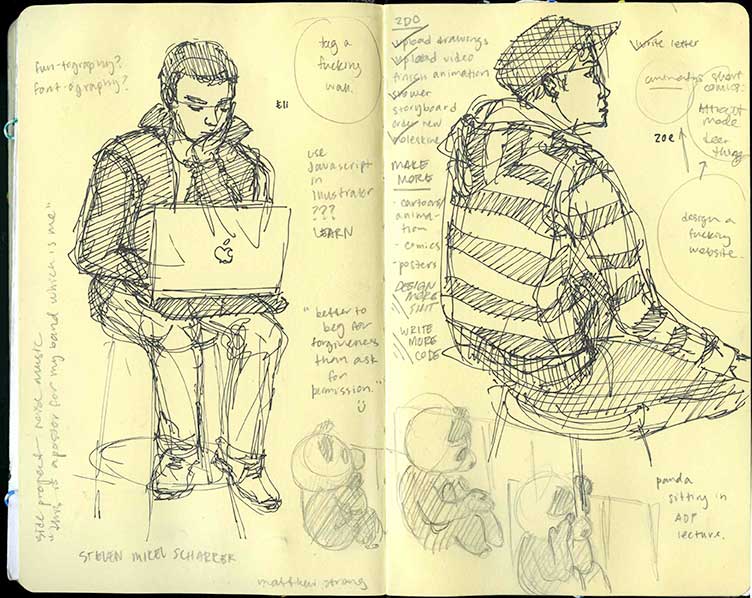 fun-tography?
font-ography?
tag a
fucking
wall.
Eli
use
Javascript
in
Illustrator
???
LEARN
"better to
beg for
forgiveness
than ask
for
permission."
side project - noise music
"this is a poster for my band which is me"
STEVEN MIKEL SCHARRER
matthew strong
2DO
upload drawings
upload video
finish animation
shower
storyboard
order new
moleskine
write letter
MAKE
MORE
- cartoons/
anima-
tion
- comics
- posters
DESIGN
MORE
SHIT
WRITE
MORE
CODE
short
comics:
made
deer
thing
zoe
design a
fucking
website.
panda
sitting in
ADP
lecture.